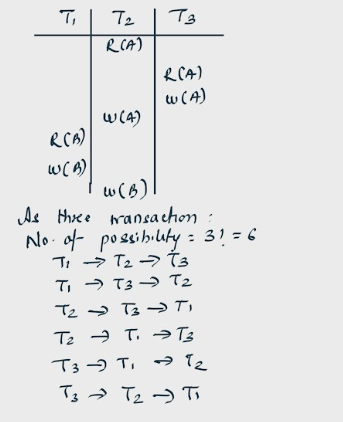 T₁ T₂ T₃
R(A)
R(A)
W(A)
W(A)
R(B)
W(B)
W(B)
As three transaction :
No. of possibility = 3! = 6
T₁ → T₂ → T₃
T₁ → T₃ → T₂
T₂ → T₃ → T₁
T₂ → T₁ → T₃
T₃ → T₁ → T₂
T₃ → T₂ → T₁